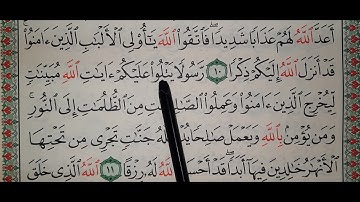 أَعَدَّ ٱللَّهُ لَهُمْ عَذَابًا شَدِيدًا ۖ فَٱتَّقُوا۟ ٱللَّهَ يَـٰٓأُو۟لِى ٱلْأَلْبَـٰبِ ٱلَّذِينَ ءَامَنُوا۟
قَدْ أَنزَلَ ٱللَّهُ إِلَيْكُمْ ذِكْرًا ١٠ رَّسُولًا يَتْلُوا۟ عَلَيْكُمْ ءَايَـٰتِ ٱللَّهِ مُبَيِّنَـٰتٍ
لِّيُخْرِجَ ٱلَّذِينَ ءَامَنُوا۟ وَعَمِلُوا۟ مِنَ ٱلظُّلُمَـٰتِ إِلَى ٱلنُّورِ ۚ
وَمَن يُؤْمِنۢ بِٱللَّهِ وَيَعْمَلْ صَـٰلِحًا جَنَّـٰتٍ تَجْرِى مِن تَحْتِهَا
ٱلْأَنْهَـٰرُ خَـٰلِدِينَ فِيهَآ أَبَدًا ۖ قَدْ ٱللَّهُ لَهُۥ رِزْقًا ١١ ٱللَّهُ ٱلَّذِى خَلَقَ